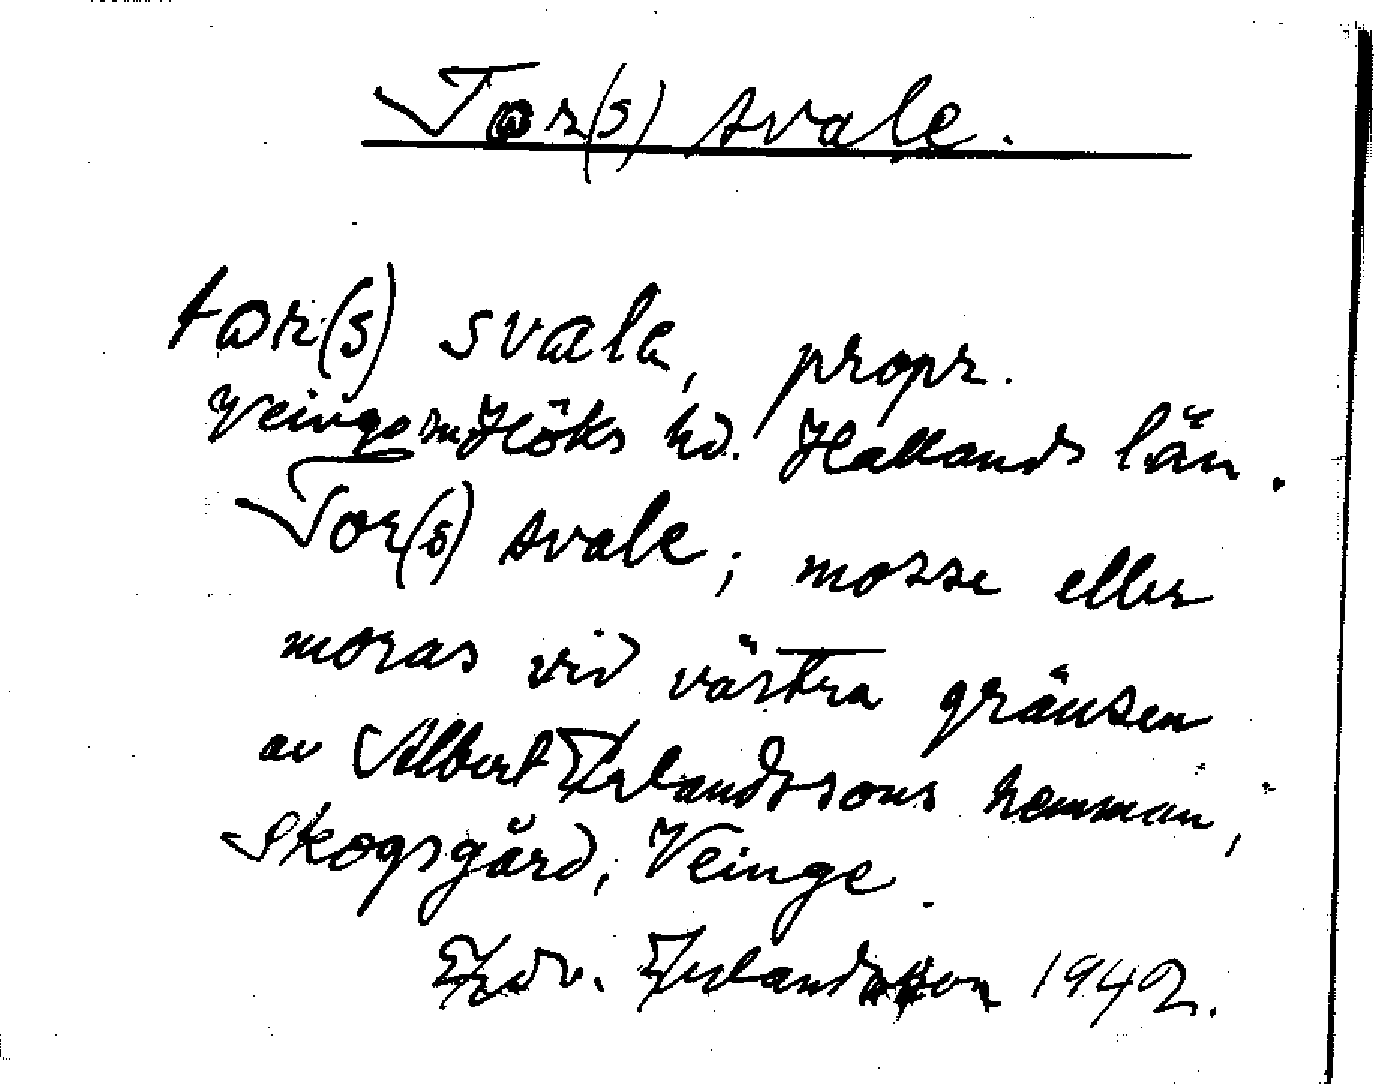 Tor(s) svale.
tor(s) svala, propr.
Veinge sn Höks hd. Hallands län.
Tor(s) svale; mosse eller
moras vid västra gränsen
av Albert Erlandssons hemman,
Skogsgård, Veinge.
Edv. Erlandsson 1942.